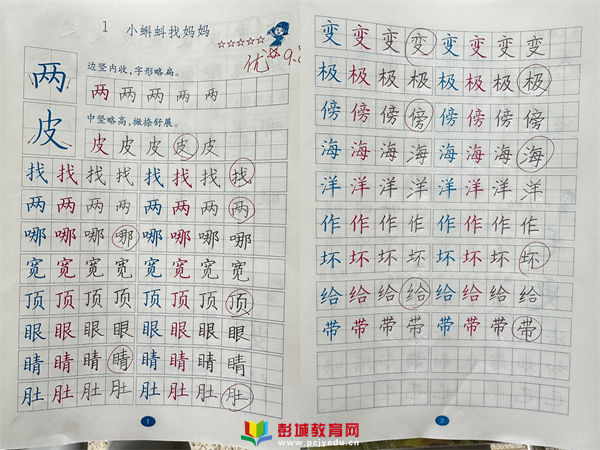 1 小蝌蚪找妈妈
优 9.
两
边竖内收,字形略扁。
两两两两两
皮
中竖略高,撇捺舒展。
皮皮皮皮皮
找找找找找找找找
两两两两两两两两
哪哪哪哪哪哪哪哪
宽宽宽宽宽宽宽宽
顶顶顶顶顶顶顶顶
眼眼眼眼眼眼眼眼
睛睛睛睛睛睛睛睛
肚肚肚肚肚肚肚肚
1
变变变变变变变变
极极极极极极极极
傍傍傍傍傍傍傍傍
海海海海海海海海
洋洋洋洋洋洋洋洋
作作作作作作作作
坏坏坏坏坏坏坏坏
给给给给给给给给
带带带带带带带带
3
彭城教育网
www.pcjyedu.cn